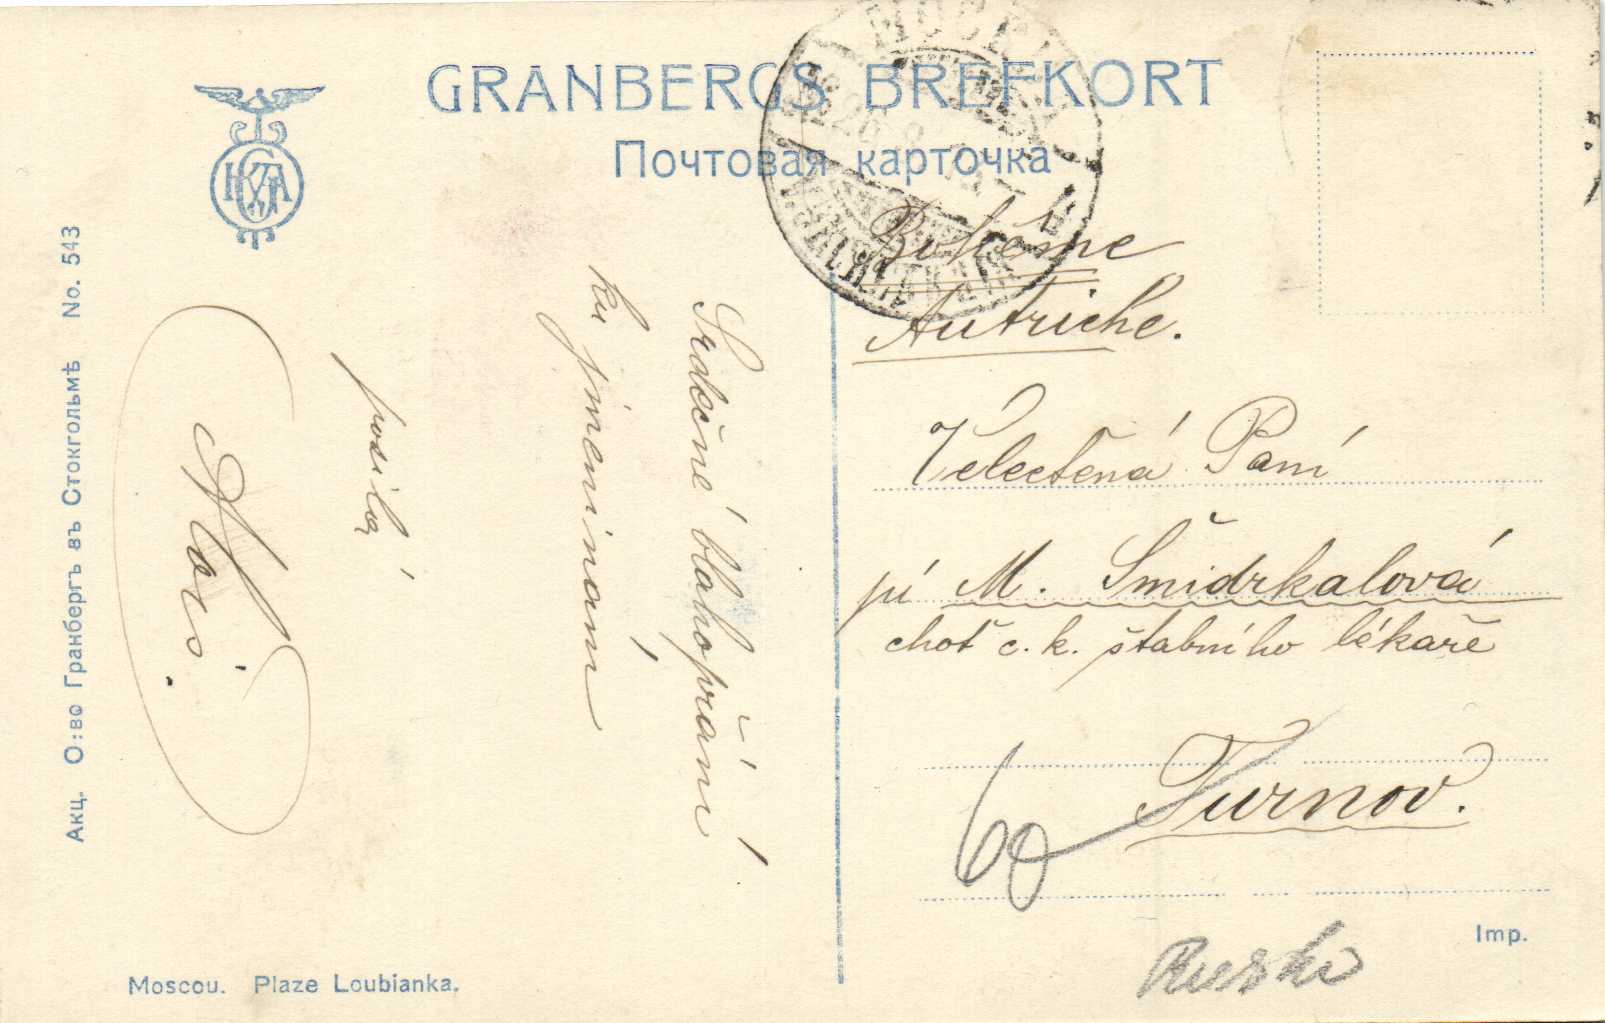 GRANBERGS BREFKORT
Почтовая карточка
Акц. О:во Гранбергъ въ Стокгольмѣ No. 543
Srdečné blahopřání
ku jmeninám
posílá
Bohême
Autriche.
Velectěná Paní
pí M. Šmidrkalová
choť c. k. štabního lékaře
Turnov.
60
Rusko
Imp.
Moscou. Plaze Loubianka.